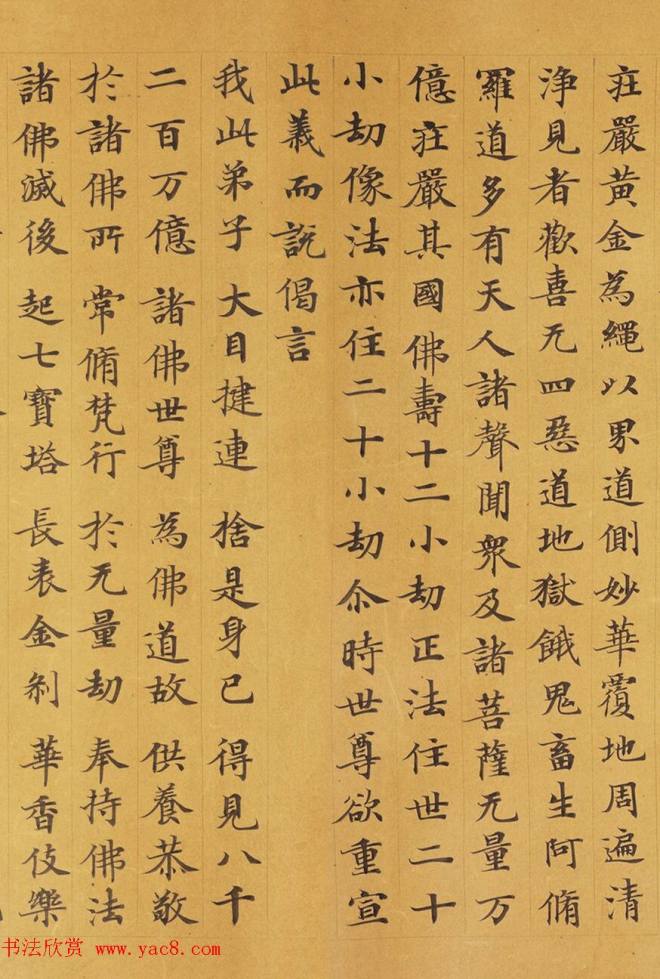 庄嚴黃金為繩以界道側妙華覆地周遍清
淨見者歡喜无四惡道地獄餓鬼畜生阿脩
羅道多有天人諸聲聞衆及諸菩薩无量万
億庄嚴其國佛壽十二小劫正法住世二十
小劫像法亦住二十小劫尒時世尊欲重宣
此義而說偈言
我此弟子 大目揵連 捨是身已 得見八千
二百万億 諸佛世尊 為佛道故 供養恭敬
於諸佛所 常脩梵行 於无量劫 奉持佛法
諸佛滅後 起七寶塔 長表金剎 華香伎樂
书法欣赏 www.yac8.com